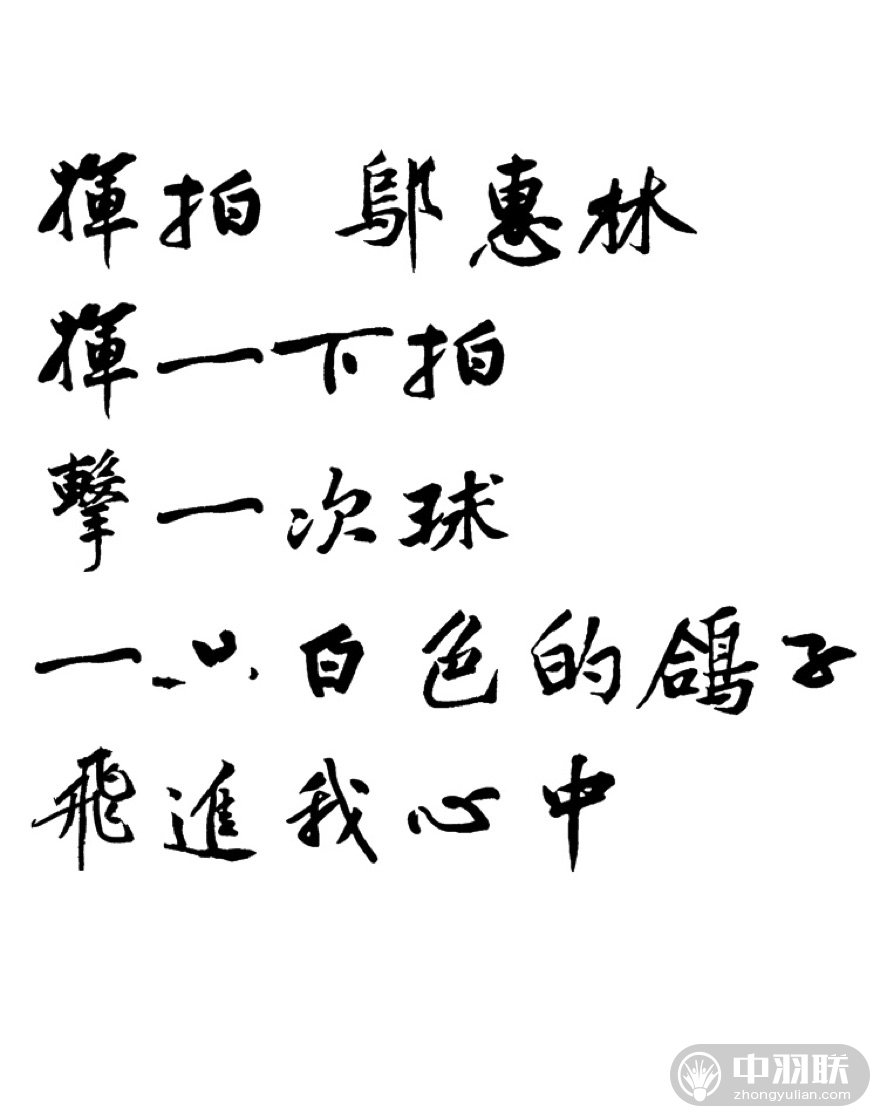 揮拍 鄔惠林
揮一下拍
擊一次球
一只白色的鴿子
飛進我心中
中羽联
zhongyulian.com